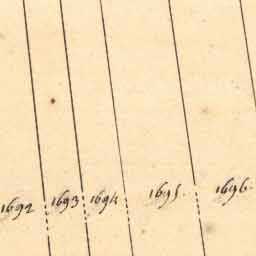 1692 1693 1694 1695. 1696.